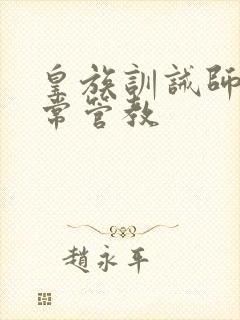 皇族訓誡師
常管教
趙永平